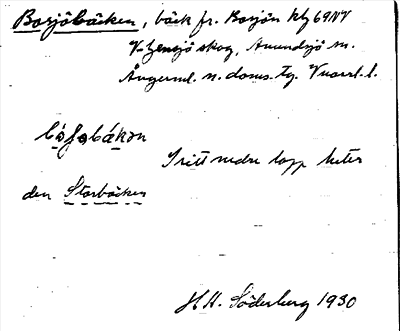 Borjöbäcken, bäck fr. Borjön kbl 69NV
V. Gensjö skog, Anundsjö sn.
Ångerml. n. doms. tg. Vnorrl. l.
bo̱ʃo̱bákɔn
I sitt nedre lopp heter
den Storbäcken
H.H. Söderberg 1930